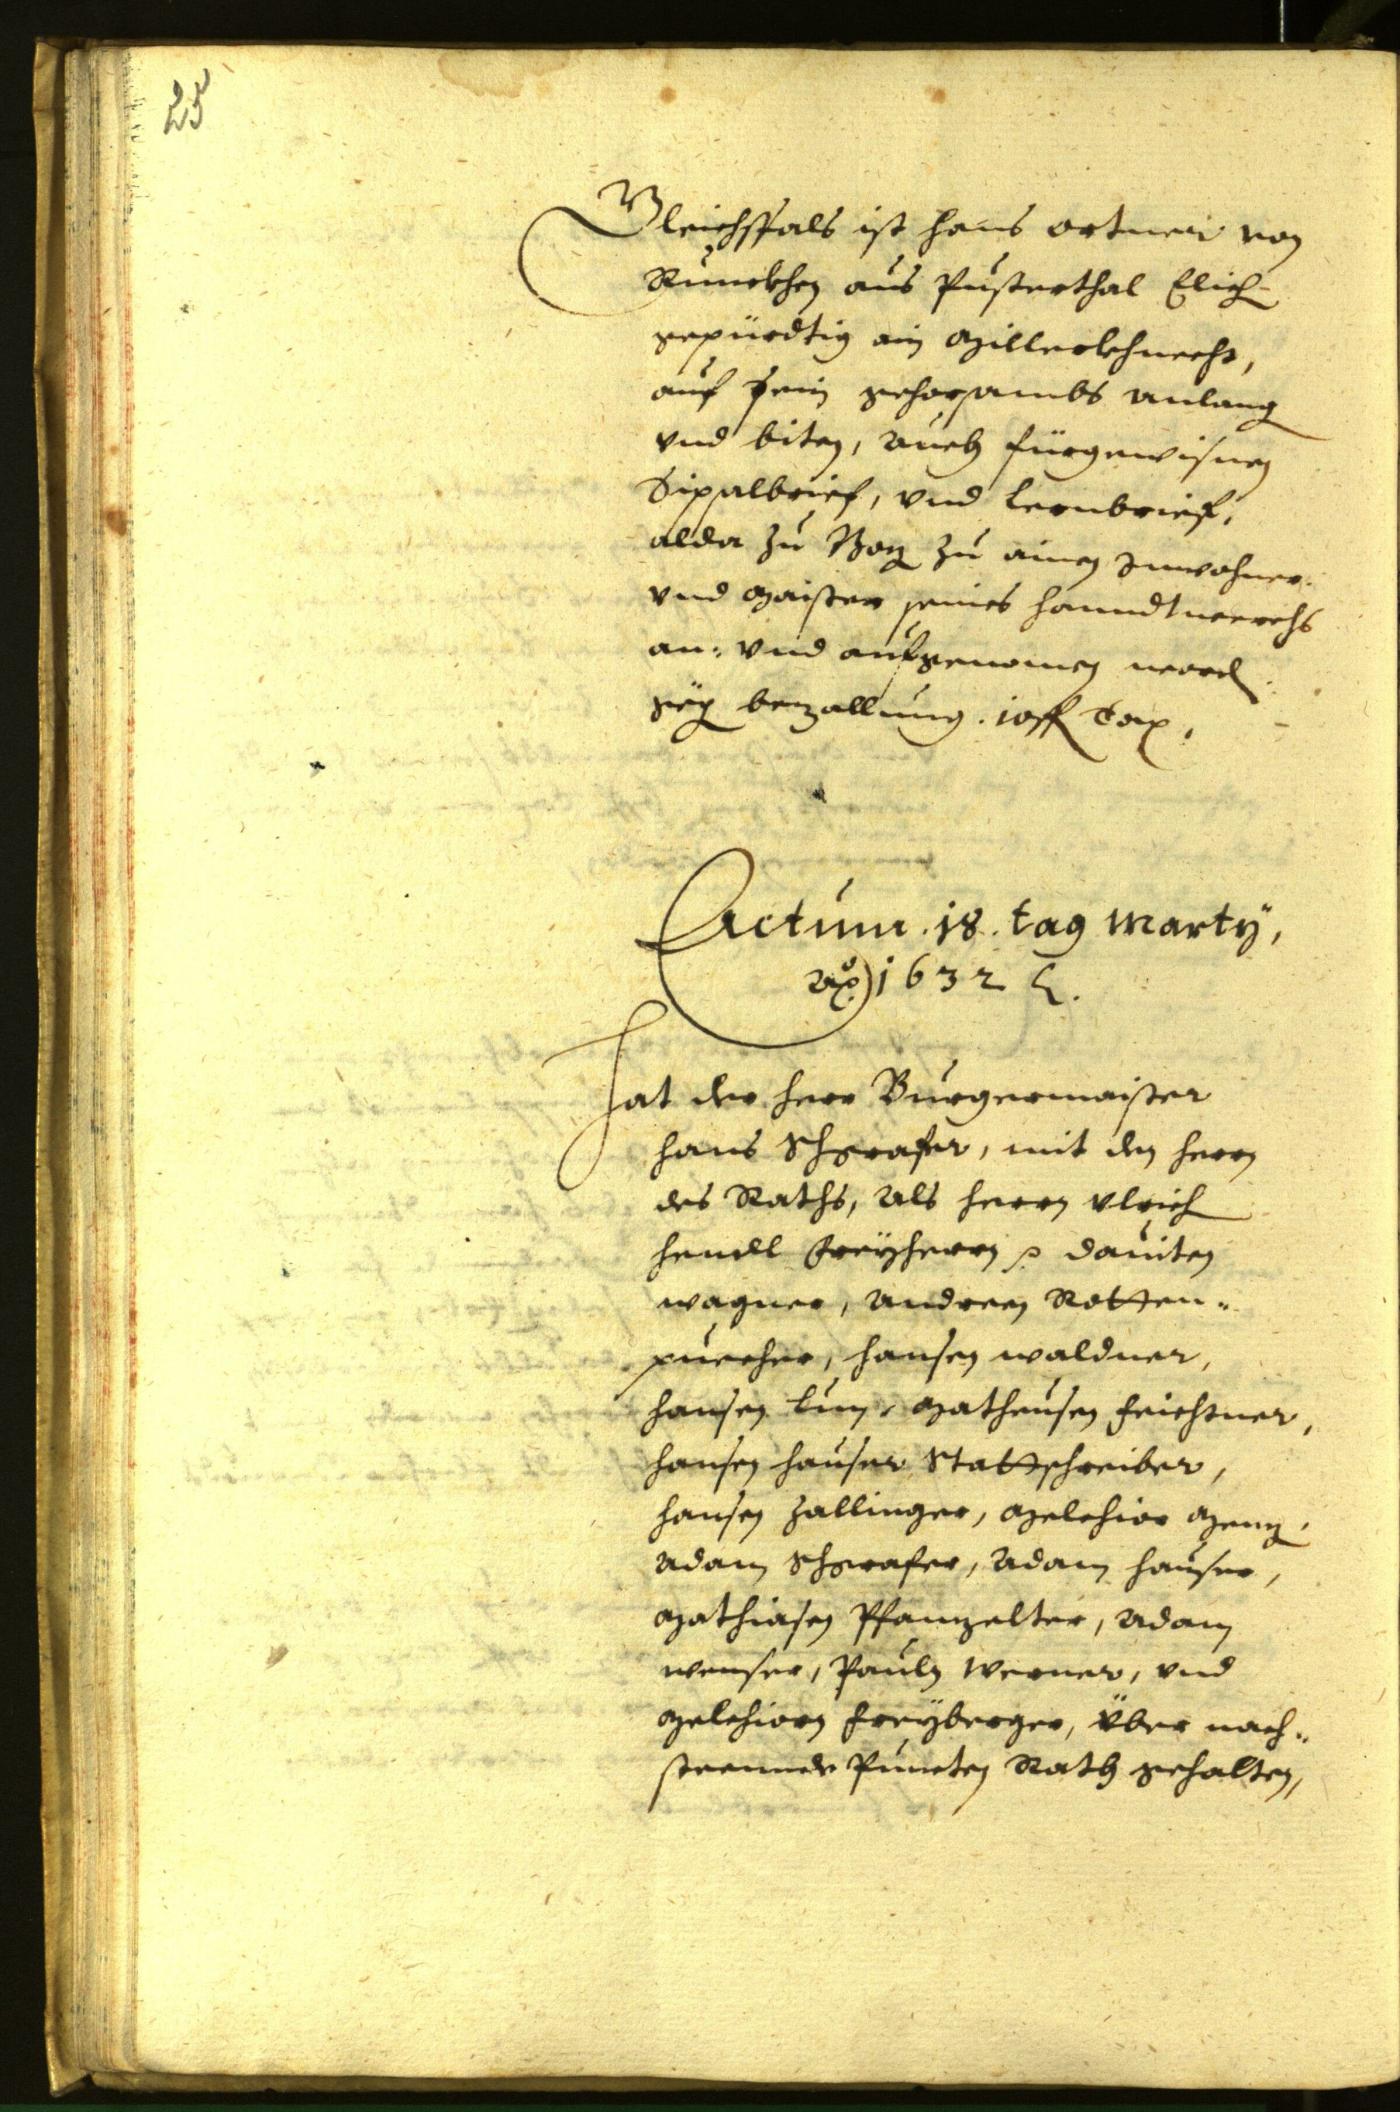 23
Gleichffals ist Hans Ortner von
Runckhen aus Pusterthal Elich
gepürdtig ain Millerkhnecht,
auf sein gehorsambs anlang
vnd biten, auch fürgewisnen
Sipalbrief, vnd Lernbrief,
alda zu Bozen zu ainen Inwohner
vnd Maister seines Hanndtwerchs
an- vnd aufgenomen word
gegen bezallung 10 fl Tax,
Actum .18. tag Marty,
Ao) 1632
Hat der Herr Burgermaister
Hans Schgrafer, mit den Herrn
des Raths, Als Herrn Vlrich
Hendl Freyherrn Dauiten
Wagner, Andreen Rotten-
puecher, Hansen Waldner,
Hansen Lun, Matheusen Feichtner,
Hansen Hauser Stattschreiber,
Hansen Zallinger, Melchior Menz,
Adam Schgrafer, Adam Hauser,
Mathiasen Pfanzelter, Adam
Wenser, Pauln Werner, vnd
Melchiorn Freyberger, Über nach-
steennde Puncten Rath gehalten,